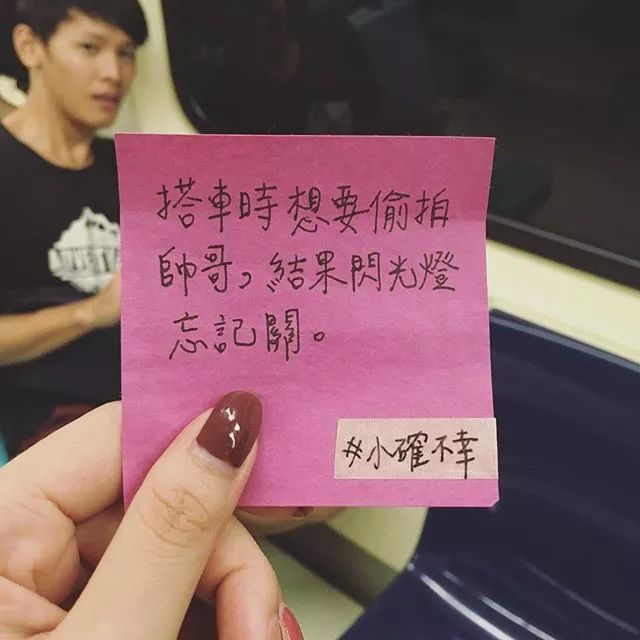 搭車時想要偷拍
帥哥，結果閃光燈
忘記關。
#小確不幸